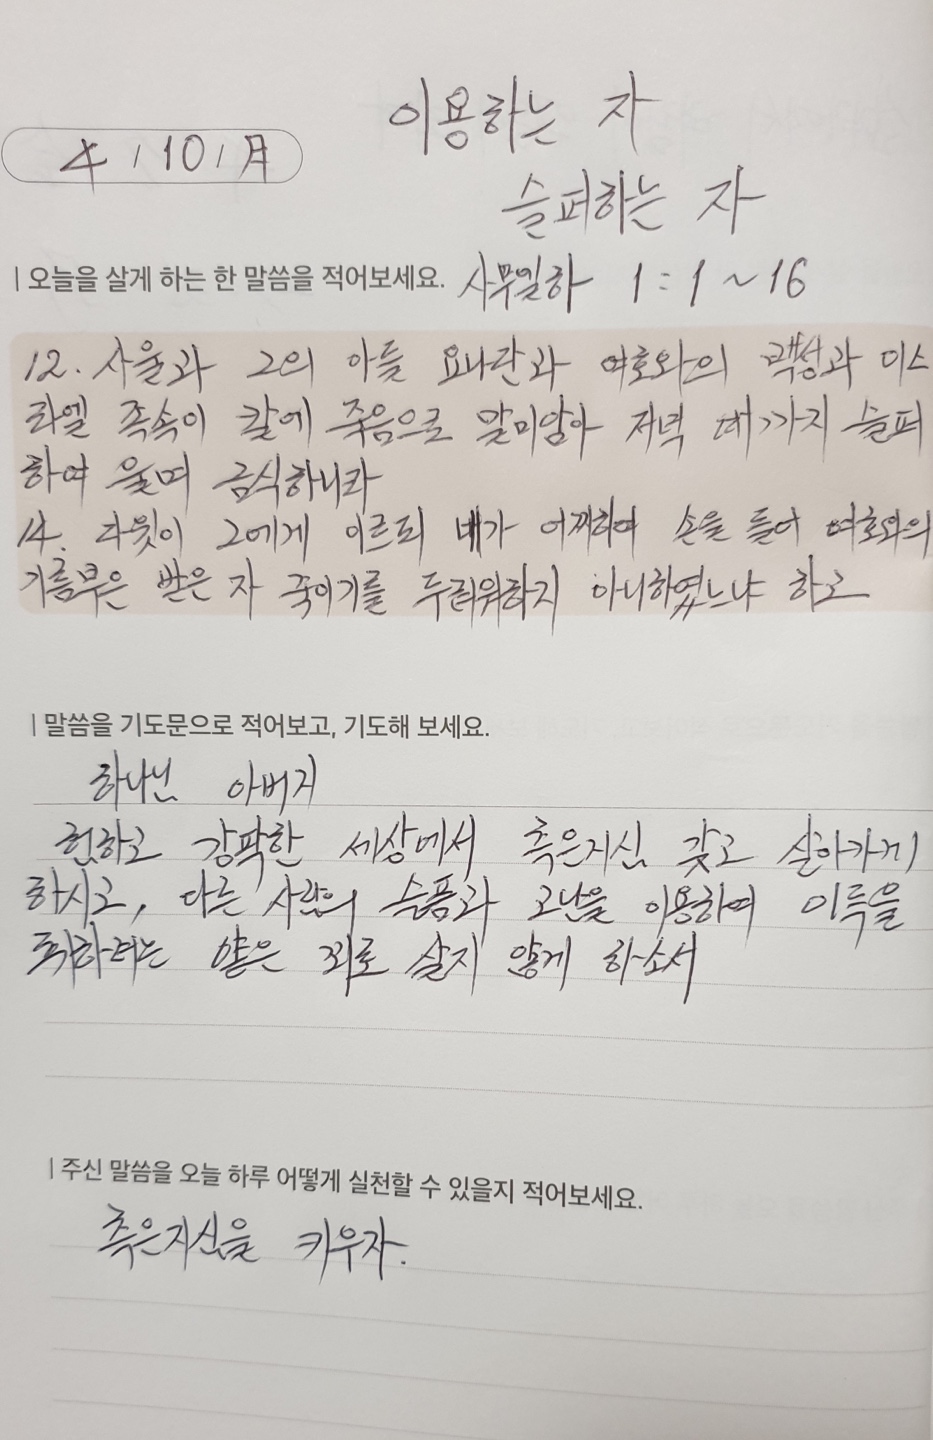 이용하는 자
4 / 10 / 月
슬퍼하는 자
| 오늘을 살게 하는 한 말씀을 적어보세요. 사무엘하 1 : 1 ~ 16
12. 사울과 그의 아들 요나단과 여호와의 백성과 이스
라엘 족속이 칼에 죽음으로 말미암아 저녁 때까지 슬퍼
하여 울며 금식하니라
14. 다윗이 그에게 이르되 네가 어찌하여 손을 들어 여호와의
기름부은 받은 자 죽이기를 두려워하지 아니하였느냐 하고
| 말씀을 기도문으로 적어보고, 기도해 보세요.
하나님 아버지
험하고 강팍한 세상에서 측은지심 갖고 살아가게
하시고, 다른 사람의 슬픔과 고난을 이용하여 이득을
취하려는 얕은 꾀로 살지 않게 하소서
| 주신 말씀을 오늘 하루 어떻게 실천할 수 있을지 적어보세요.
측은지심을 키우자.